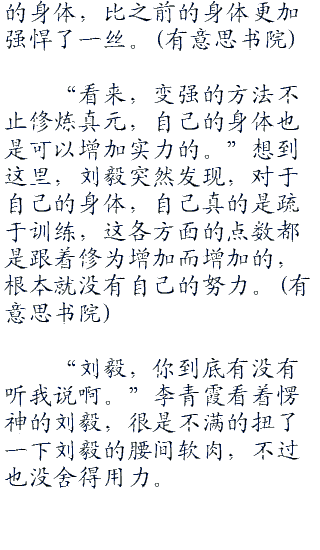 的身体，比之前的身体更加
强悍了一丝。(有意思书院)
“看来，变强的方法不
止修炼真元，自己的身体也
是可以增加实力的。”想到
这里，刘毅突然发现，对于
自己的身体，自己真的是疏
于训练，这各方面的点数都
是跟着修为增加而增加的，
根本就没有自己的努力。(有
意思书院)
“刘毅，你到底有没有
听我说啊。”李青霞看着愣
神的刘毅，很是不满的扭了
一下刘毅的腰间软肉，不过
也没舍得用力。